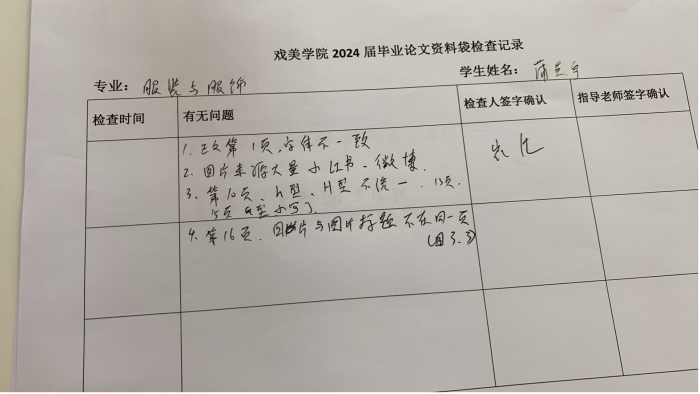 戏美学院 2024 届毕业论文资料袋检查记录
专业：服装与服饰 学生姓名：蒲
检查时间 有无问题 检查人签字确认 指导老师签字确认
1. 正文第1页，字体不一致
2. 图片来源大量小红书、微博.
3. 第10页、h型、H型不统一. 13页.
15页 型小写）
4. 第16页. 图片与图片标题不在同一页
(图3.3)